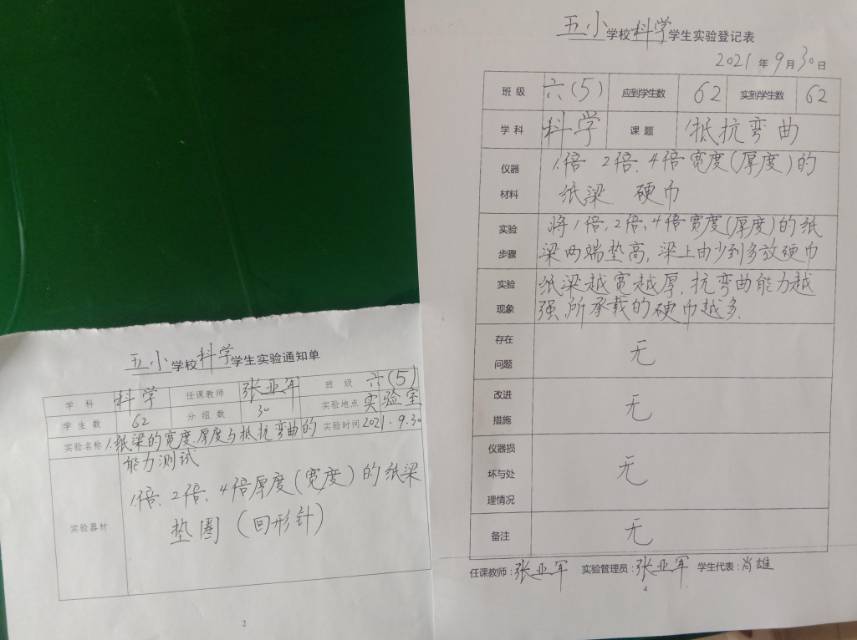 五小学校科学学生实验通知单
学科 科学 任课教师 张亚军 班级 六(5)
学生数 62 分组数 30 实验地点 实验室
实验名称 1.纸梁的宽度、厚度与抵抗弯曲的 实验时间 2021.9.30
能力测试
实验器材 1倍、2倍、4倍厚度(宽度)的纸梁
垫圈(回形针)
2
五小学校科学学生实验登记表
2021年9月30日
班级 六(5) 应到学生数 62 实到学生数 62
学科 科学 课题 抵抗弯曲
仪器材料 1倍、2倍、4倍宽度(厚度)的
纸梁 硬币
实验步骤 将1倍、2倍、4倍宽度(厚度)的纸
梁两端垫高,梁上由少到多放硬币
实验现象 纸梁越宽越厚,抗弯曲能力越
强,所承载的硬币越多.
存在问题 无
改进措施 无
仪器损坏与处理情况 无
备注 无
任课教师:张亚军 实验管理员:张亚军 学生代表:肖雄
4